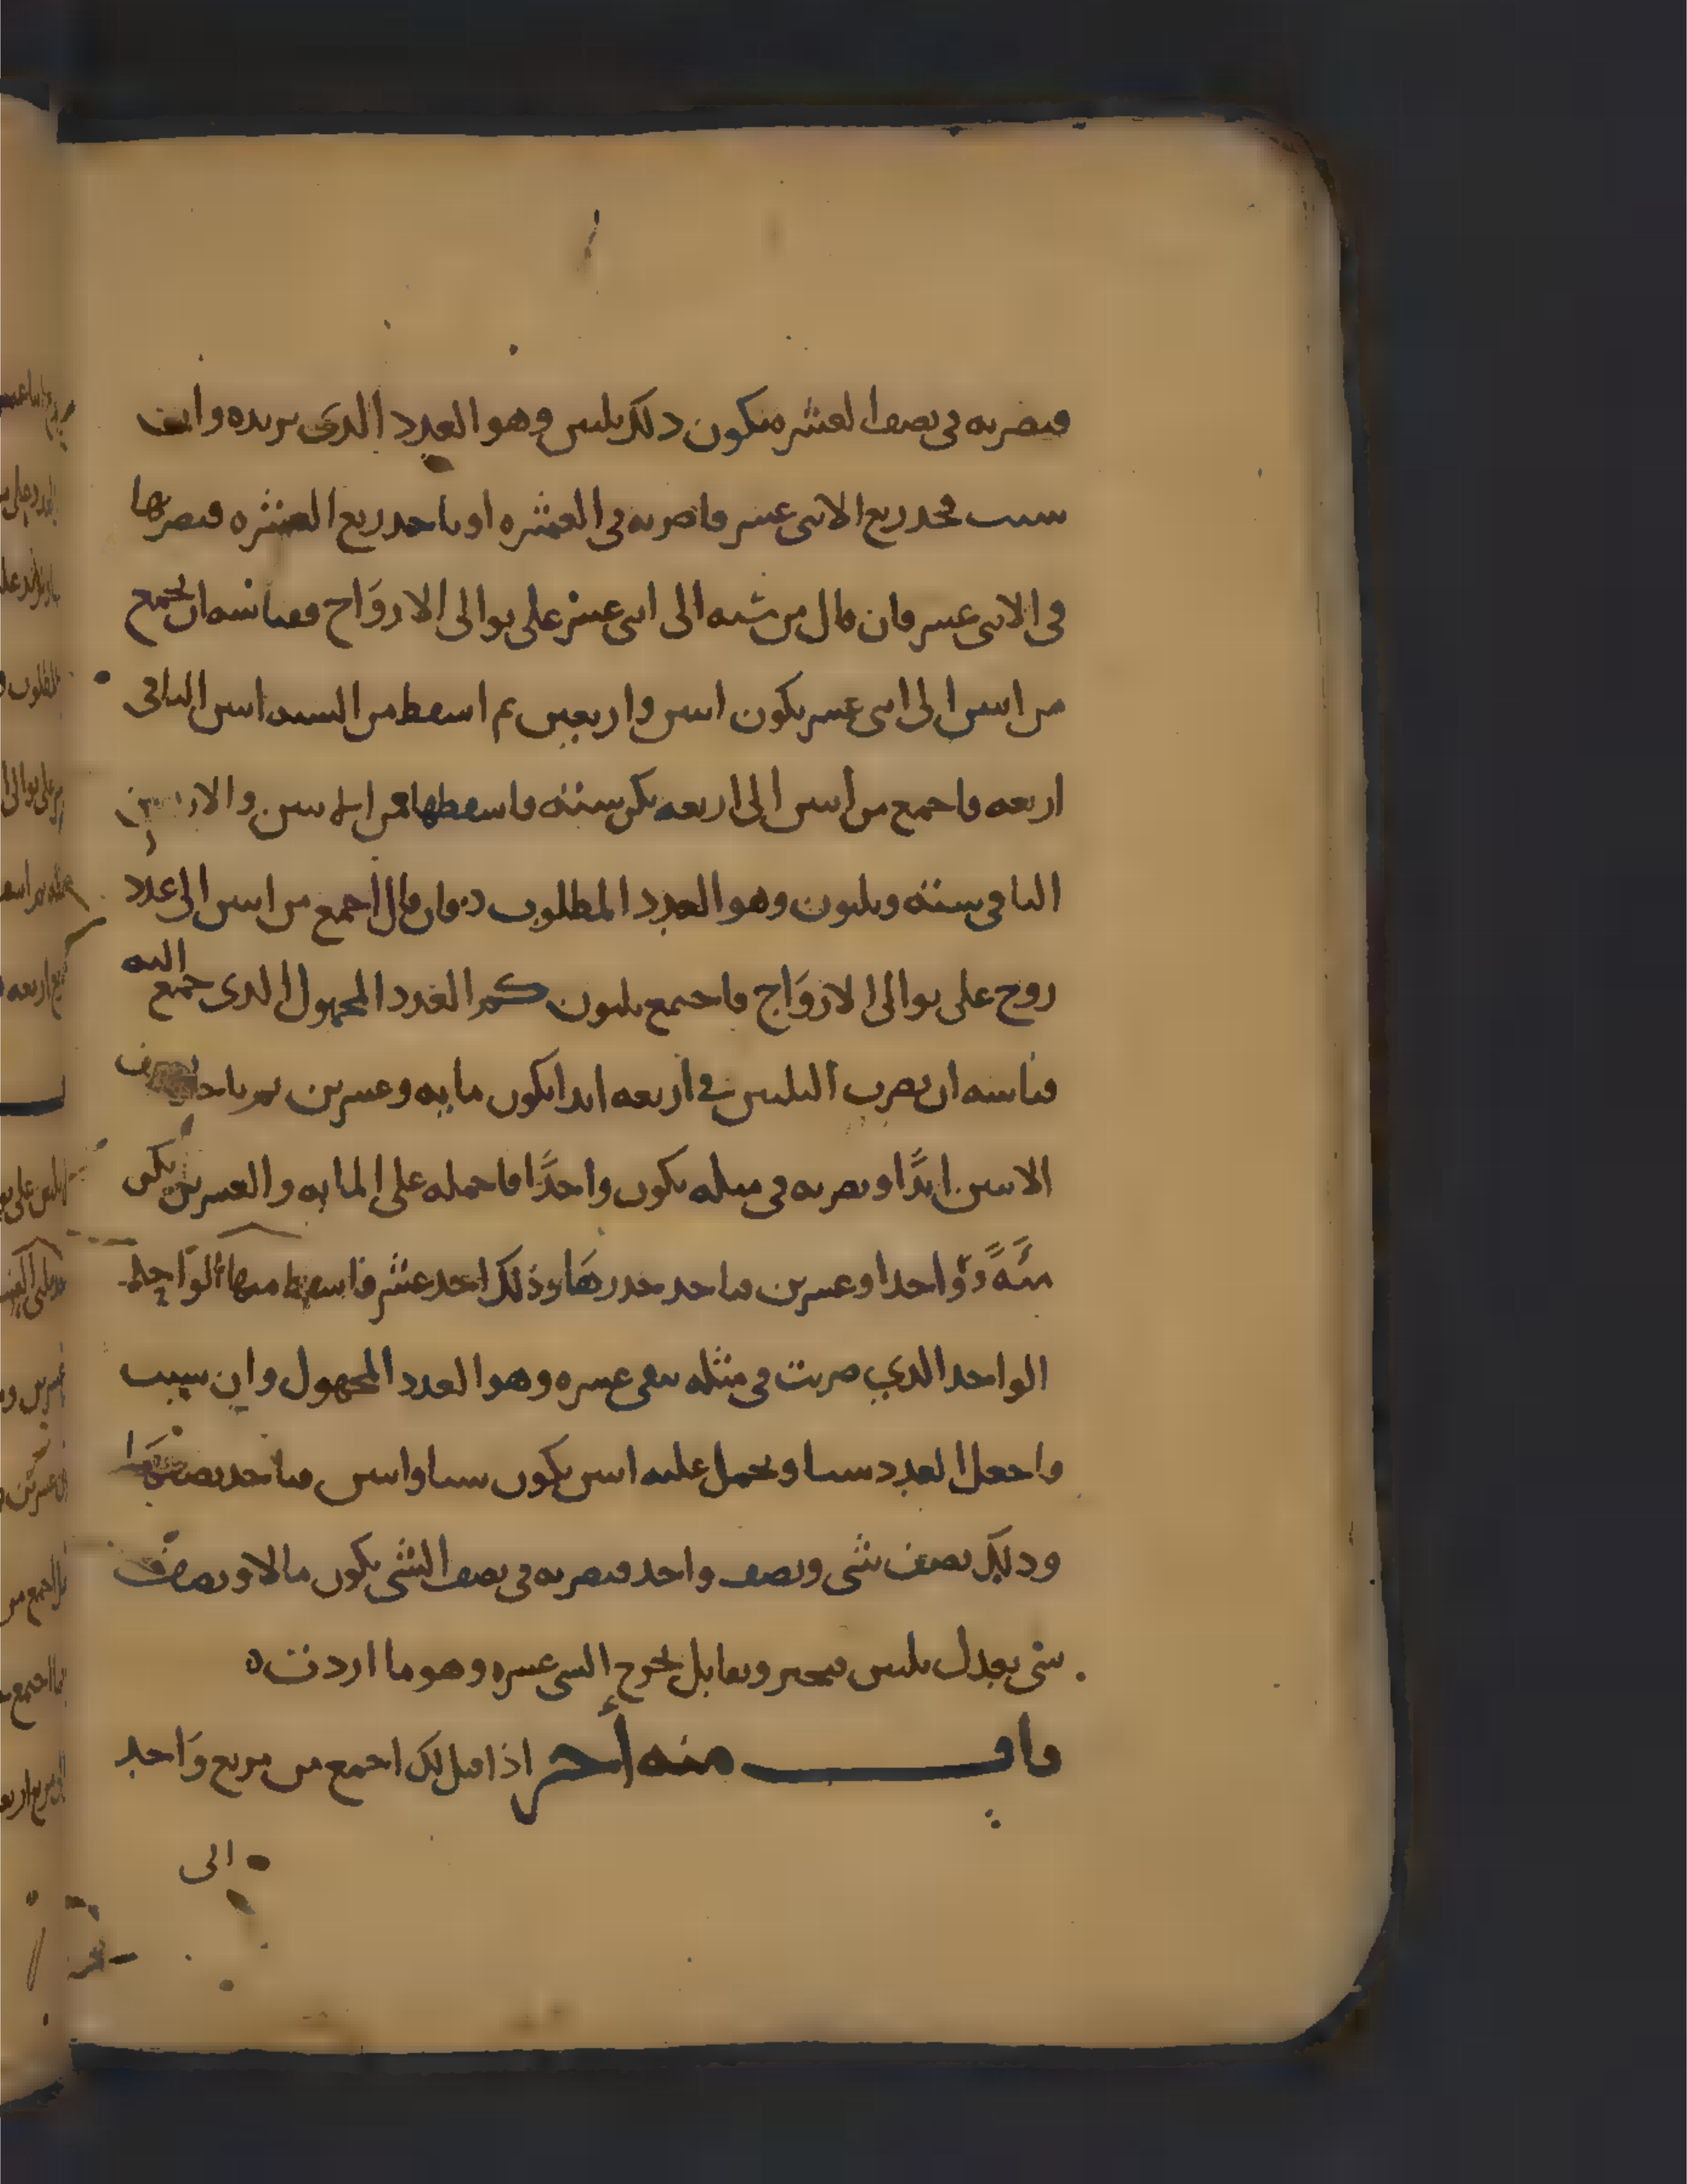 فتضربه في نصف العشره فيكون ذلك ثلثين وهو العدد الذي نريده وان
شيت فخذ ربع الاثنى عشر فاضربه في العشره او تاخذ ربع العشره فتضربها
في الاثنى عشر فان قال من سته الى اثنى عشر على توالى الازواج فقياسه ان تجمع
من اثنين الى اثنى عشر يكون اثنين واربعين ثم اسقط من السته اثنين الباقى
اربعه فاجمع من اثنين الى اربعه تكن سته فاسقطها من اثنين والاربعين
الباقي سته وثلثون وهو العدد المطلوب فان قال اجمع من اثنين الى عدد
زوج على توالى الازواج فاجتمع ثلثون كم العدد المجهول الذى جمع اليه
قياسه ان تضرب الثلثين في اربعه ابدا يكون مايه وعشرين ثم تاخذ نصف
الاثنين ابدًا وتضربه في مثله يكون واحدًا فاحمله على المايه والعشرين يكن
مئةً وواحدا وعشرين فتاخذ جذرها وذلك احد عشر فاسقط منها الواحد
الواحد الذي ضربت في مثله يبقى عشره وهو العدد المجهول وان شيت
فاجعل العدد شيا وتحمل عليه اثنين يكون شيا واثنين فتاخذ نصفها
وذلك نصف شى ونصف واحد فتضربه في نصف الشى يكون مالا ونصف
شى يعدل ثلثين فتجبر وتقابل يخرج الشى عشره وهو ما اردت ه
باب منه أخر اذا قيل لك اجمع من مربع واحد
الى